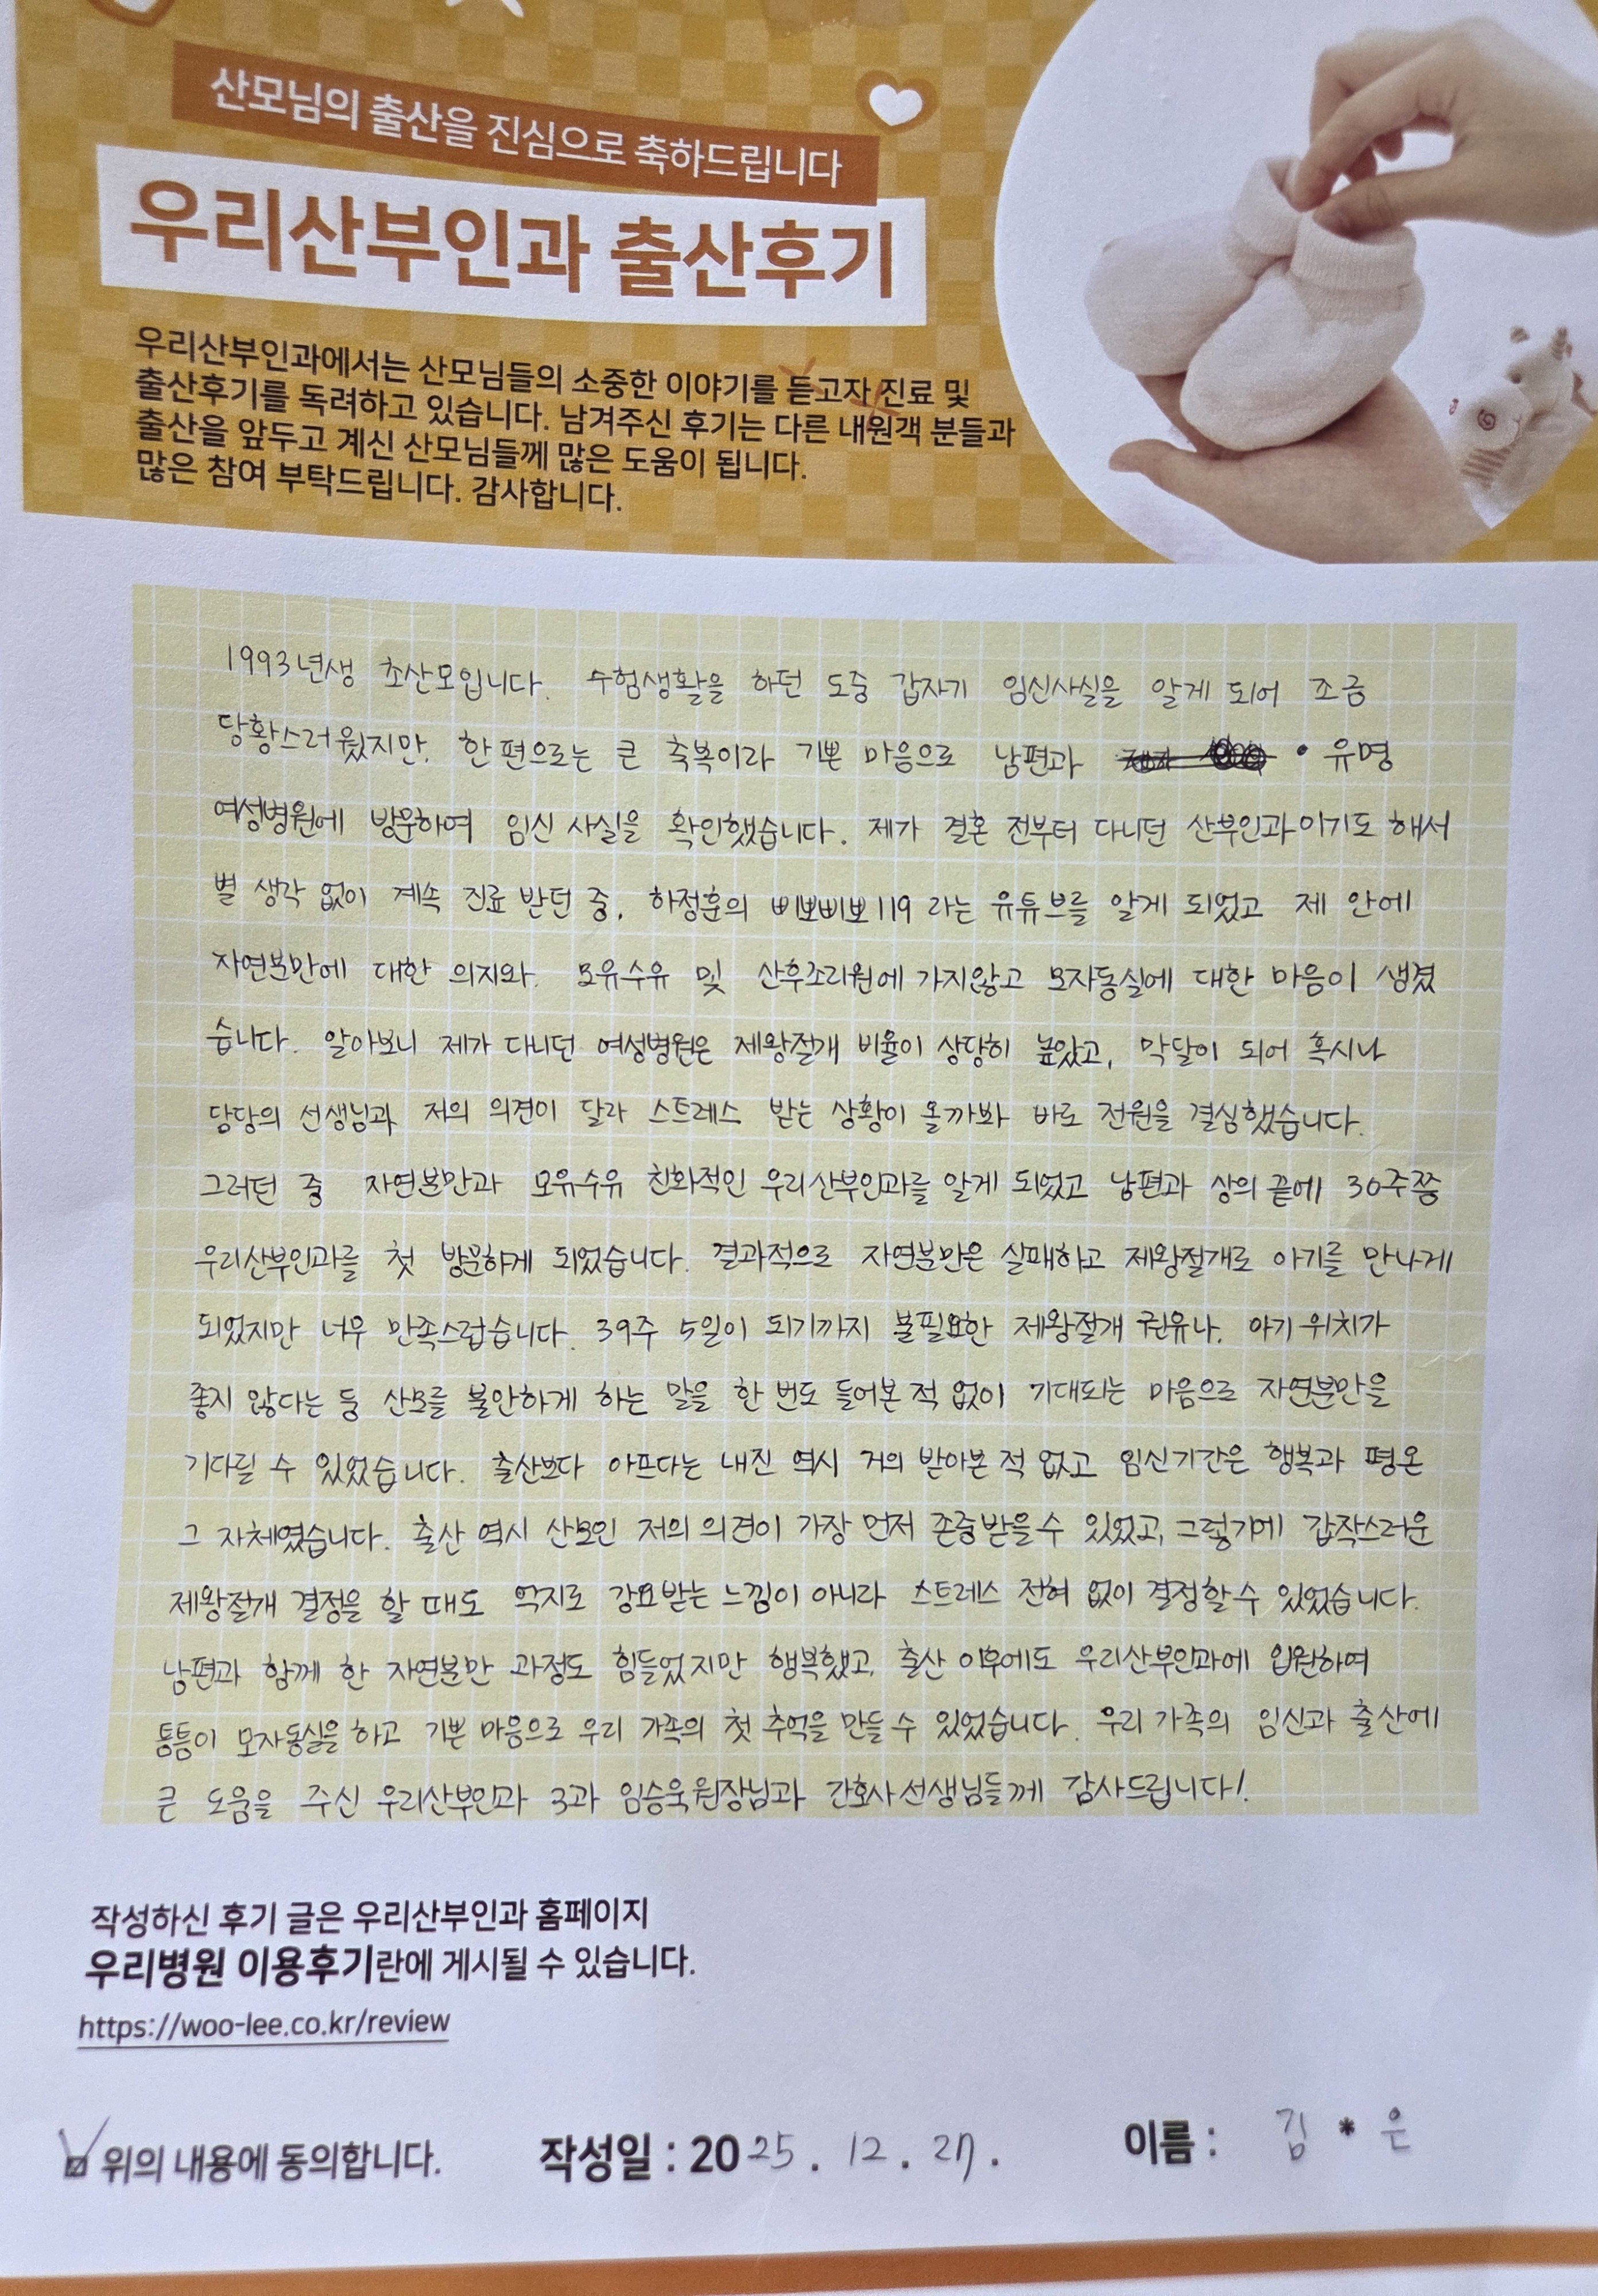 산모님의 출산을 진심으로 축하드립니다
우리산부인과 출산후기
우리산부인과에서는 산모님들의 소중한 이야기를 듣고자 진료 및
출산후기를 독려하고 있습니다. 남겨주신 후기는 다른 내원객 분들과
출산을 앞두고 계신 산모님들께 많은 도움이 됩니다.
많은 참여 부탁드립니다. 감사합니다.
1993년생 초산모입니다. 수험생활을 하던 도중 갑자기 임신사실을 알게 되어 조금
당황스러웠지만, 한편으로는 큰 축복이라 기쁜 마음으로 남편과 • 유명
여성병원에 방문하여 임신 사실을 확인했습니다. 제가 결혼 전부터 다니던 산부인과이기도 해서
별 생각 없이 계속 진료 받던 중, 하정훈의 삐뽀삐뽀119 라는 유튜브를 알게 되었고 제 안에
자연분만에 대한 의지와 모유수유 및 산후조리원에 가지않고 모자동실에 대한 마음이 생겼
습니다. 알아보니 제가 다니던 여성병원은 제왕절개 비율이 상당히 높았고, 막달이 되어 혹시나
담당의 선생님과 저의 의견이 달라 스트레스 받는 상황이 올까봐 바로 전원을 결심했습니다.
그러던 중 자연분만과 모유수유 친화적인 우리산부인과를 알게 되었고 남편과 상의 끝에 30주쯤
우리산부인과를 첫 방문하게 되었습니다. 결과적으로 자연분만은 실패하고 제왕절개로 아기를 만나게
되었지만 너무 만족스럽습니다. 39주 5일이 되기까지 불필요한 제왕절개 권유나, 아기 위치가
좋지 않다는 둥 산모를 불안하게 하는 말을 한 번도 들어본 적 없이 기대되는 마음으로 자연분만을
기다릴 수 있었습니다. 출산보다 아프다는 내진 역시 거의 받아본 적 없고 임신기간은 행복과 평온
그 자체였습니다. 출산 역시 산모인 저의 의견이 가장 먼저 존중받을 수 있었고, 그렇기에 갑작스러운
제왕절개 결정을 할 때도 억지로 강요받는 느낌이 아니라 스트레스 전혀 없이 결정할 수 있었습니다.
남편과 함께 한 자연분만 과정도 힘들었지만 행복했고, 출산 이후에도 우리산부인과에 입원하여
틈틈이 모자동실을 하고 기쁜 마음으로 우리 가족의 첫 추억을 만들 수 있었습니다. 우리 가족의 임신과 출산에
큰 도움을 주신 우리산부인과 3과 임승욱 원장님과 간호사 선생님들께 감사드립니다!
작성하신 후기 글은 우리산부인과 홈페이지
우리병원 이용후기란에 게시될 수 있습니다.
https://woo-lee.co.kr/review
위의 내용에 동의합니다. 작성일 : 2025. 12. 27. 이름 : 김 * 은